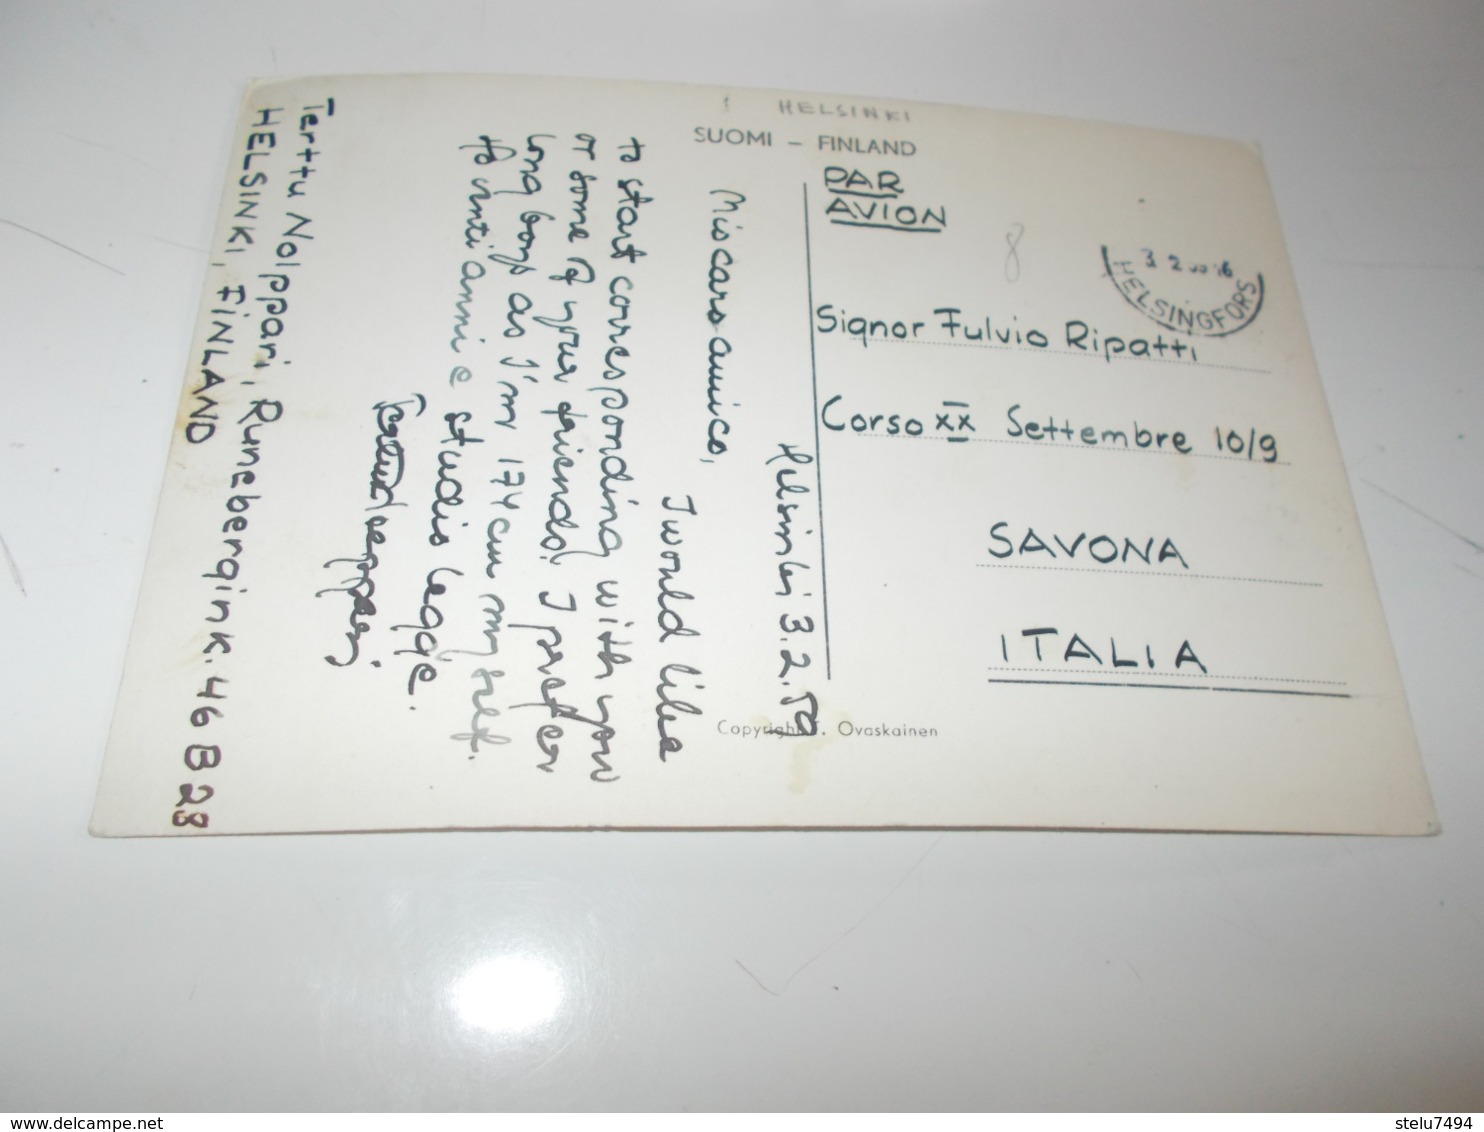 HELSINKI
SUOMI – FINLAND
PAR
AVION
3 2
HELSINGFORS
Signor Fulvio Ripatti
Corso XX Settembre 10/9
SAVONA
ITALIA
Copyright . Ovaskainen
8
Helsinki 3.2.
Mio caro amico,
I would like
to start corresponding with you
or some of your friends. I prefer
long boys as I'm 174 cm myself.
Ho venti anni e studio legge.
Terttu Nolppari, Runebergink. 46 B 28
HELSINKI, FINLAND